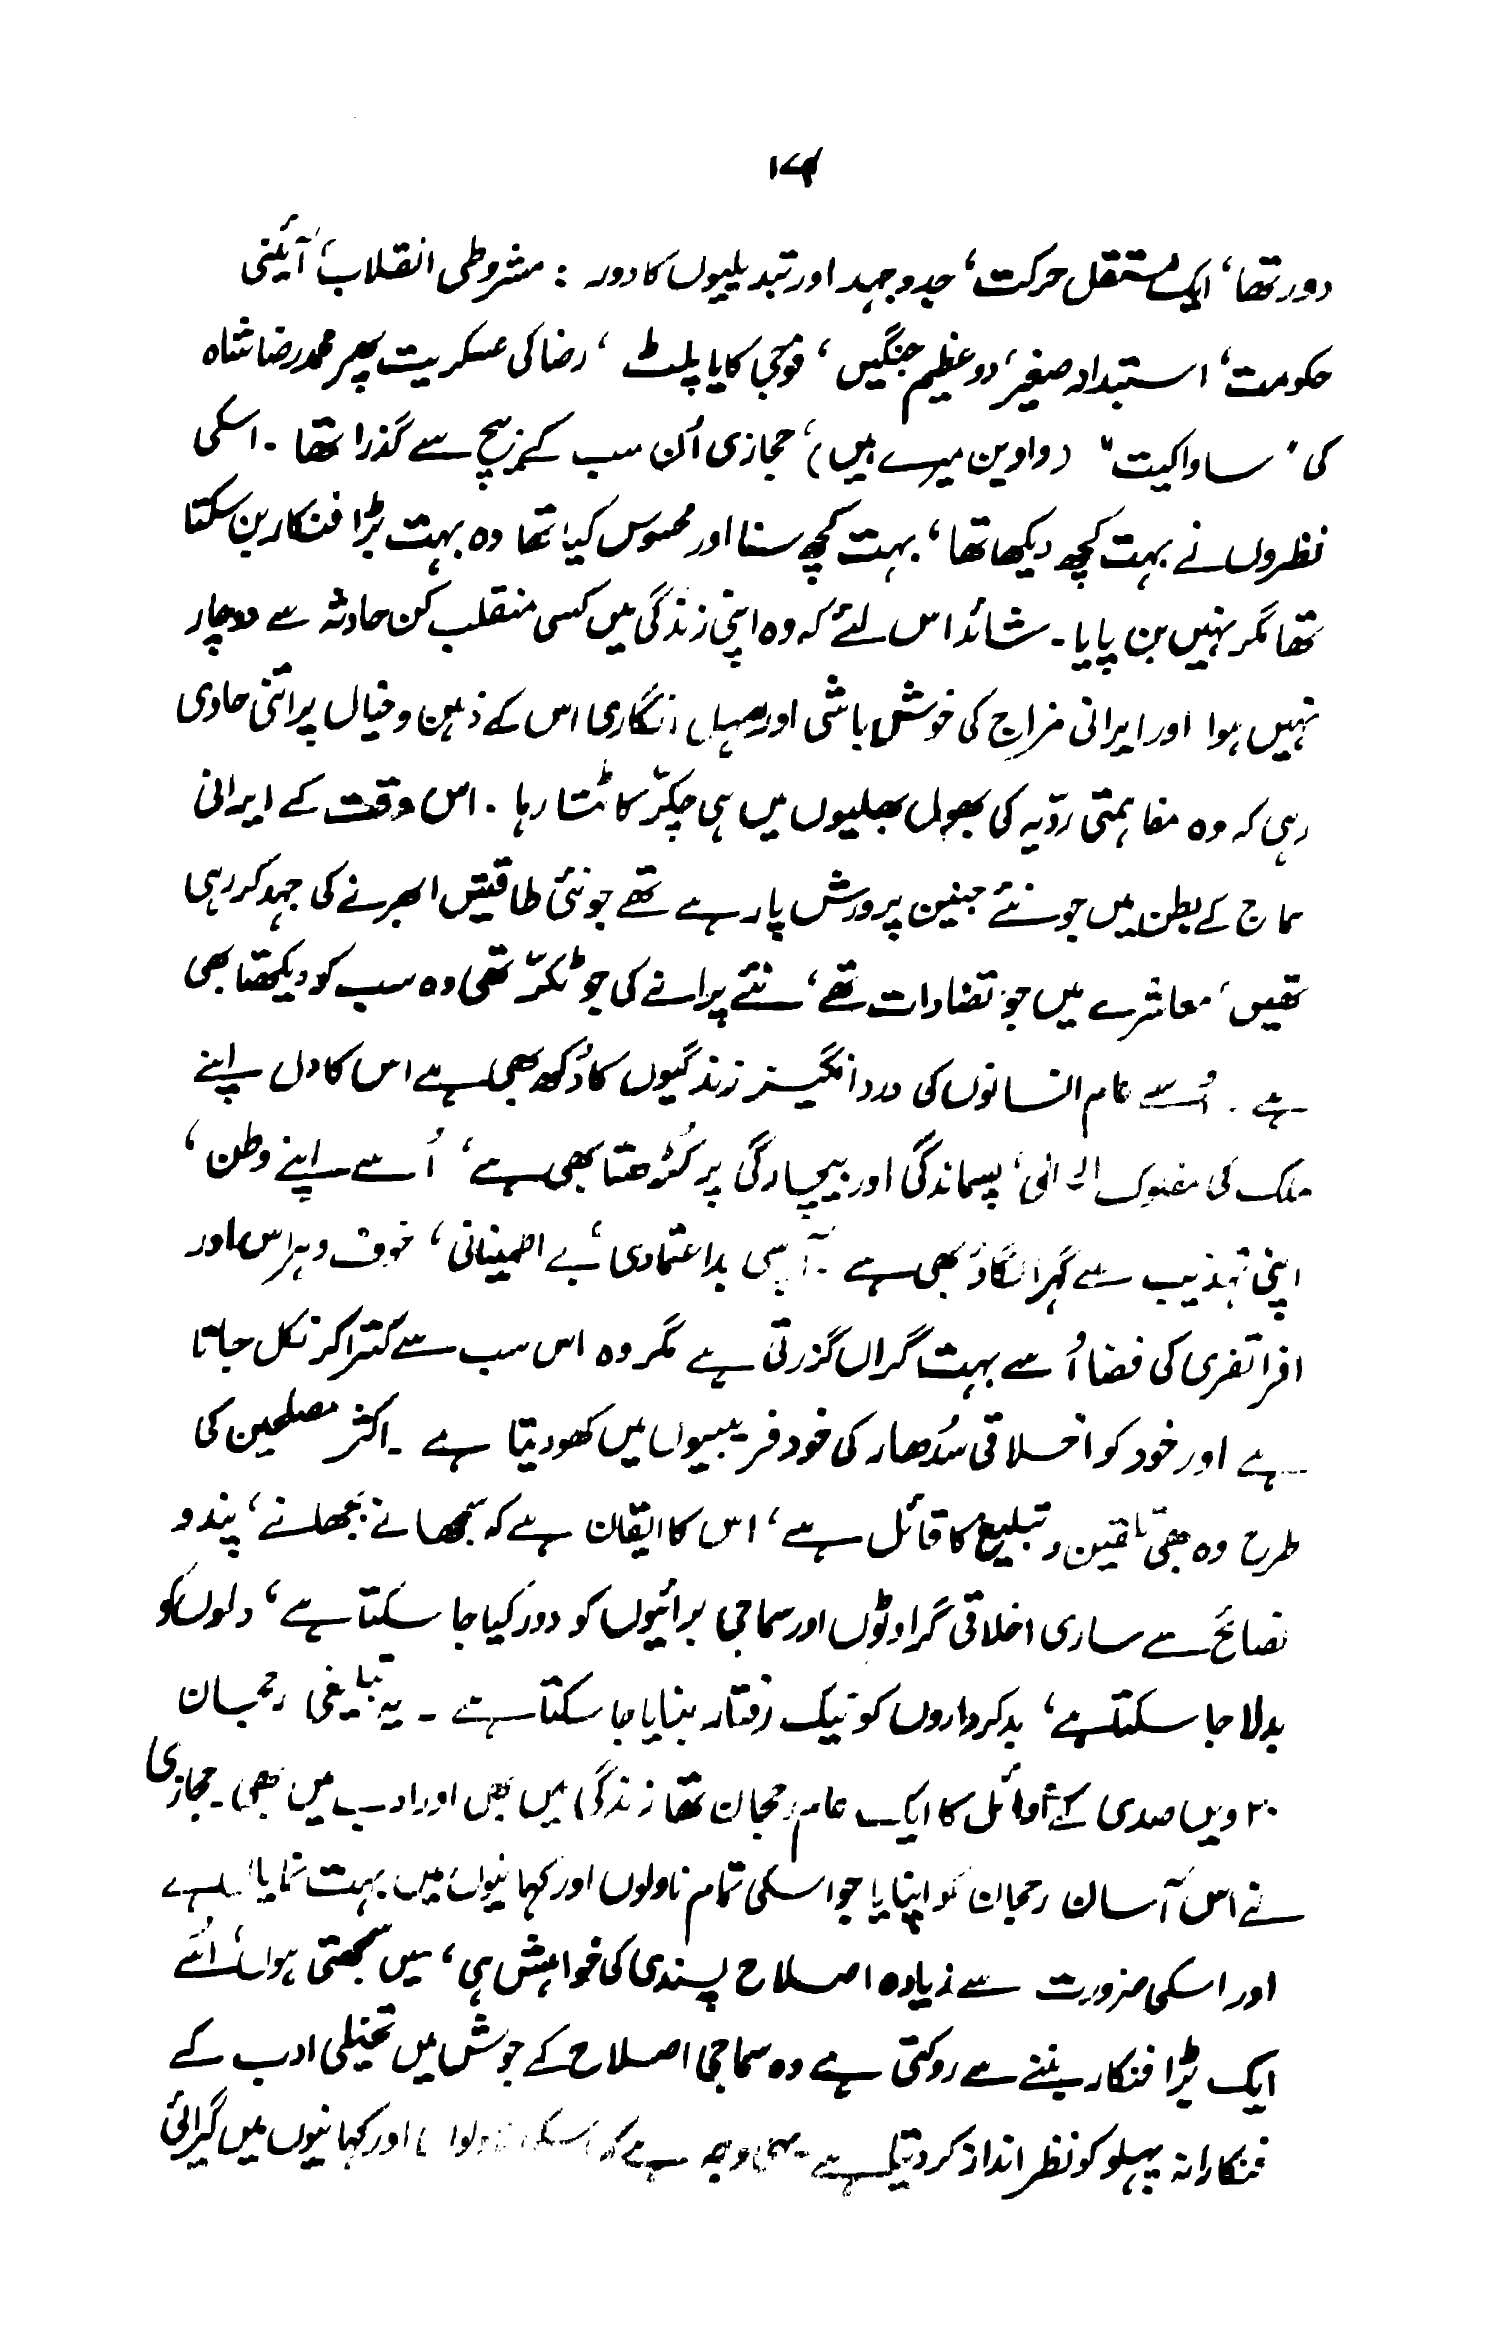 دور تھا، ایک مستقل حرکت، جدوجہد اور تبدیلیوں کا دور : مشروطی انقلاب، آئینی
حکومت، استبداد صغیر، دو عظیم جنگیں، فوجی کایا پلٹ، رضا کی عسکریت پھر محمد رضا شاہ
کی "ساواکیت" (واوین میرے ہیں)، حجازی اُن سب کے بیچ سے گذرا تھا۔ اسکی
نظروں نے بہت کچھ دیکھا تھا، بہت کچھ سنا اور محسوس کیا تھا وہ بہت بڑا فنکار بن سکتا
تھا مگر نہیں بن پایا۔ شائد اس لئے کہ وہ اپنی زندگی میں کسی منقلب کن حادثہ سے دوچار
نہیں ہوا اور ایرانی مزاج کی خوش باشی اور سہل انگاری اس کے ذہن و خیال پر اتنی حاوی
رہی کہ وہ مفاہمتی ردّیہ کی بھول بھلیوں میں ہی چکّر کاٹتا رہا۔ اس وقت کے ایرانی
سماج کے بطن میں جو نئے جنین پرورش پا رہے تھے جو نئی طاقتیں ابھرنے کی جہد کر رہی
تھیں، معاشرے میں جو تضادات تھے، نئے پرانے کی جو ٹکرّ تھی وہ سب کو دیکھتا بھی
ہے۔ اُسے عام انسانوں کی درد انگیز زندگیوں کا دُکھ بھی ہے اس کا دل اپنے
ملک کی مفلوک الحالی، پسماندگی اور بیچارگی پر کُڑھتا بھی ہے، اُسے اپنے وطن،
اپنی تہذیب سے گہرا لگاؤ بھی ہے۔ آپسی بداعتمادی، بے اطمینانی، خوف و ہراس اور
افراتفری کی فضا اُسے بہت گراں گزرتی ہے مگر وہ اس سب سے کترا کر نکل جاتا
ہے اور خود کو اخلاقی سُدھار کی خود فریبیوں میں کھو دیتا ہے۔ اکثر مصلحین کی
طرح وہ بھی تلقین و تبلیغ کا قائل ہے، اس کا ایقان ہے کہ سمجھانے بجھلنے، پند و
نصائح سے ساری اخلاقی گراوٹوں اور سماجی برائیوں کو دور کیا جا سکتا ہے، دلوں کو
بدلا جا سکتا ہے، بدکرداروں کو نیک رفتار بنایا جا سکتا ہے۔ یہ تبلیغی رحجان
۲۰ ویں صدی کے اوائل کا ایک عام رحجان تھا زندگی میں بھی اور ادب میں بھی۔ حجازی
نے اس آسان رحجان کو اپنایا جو اسکی تمام ناولوں اور کہانیوں میں بہت نمایاں ہے
اور اسکی ضرورت سے زیادہ اصلاح پسندی کی خواہش ہی، میں سمجھتی ہوں، اُسے
ایک بڑا فنکار بننے سے روکتی ہے وہ سماجی اصلاح کے جوش میں تخیلی ادب کے
فنکارانہ پہلو کو نظر انداز کر دیتا ہے۔ یہی وجہ ہے کہ اسکی ناولوں اور کہانیوں میں گہرائی